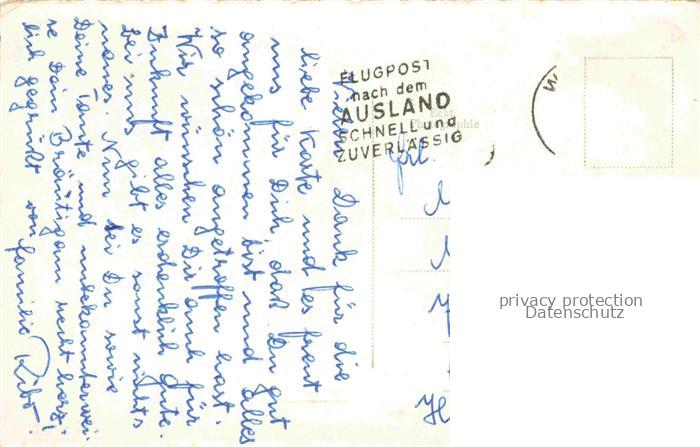 Vielen Dank für die
liebe Karte und es freut
uns für Dich, daß Du gut
angekommen bist und alles
so schön angetroffen hast.
Wir wünschen Dir auch für
Zukunft alles erdenklich Gute.
Bei uns gibt es sonst nichts
neues. Nun sei Du sowie
Deine Tante und unbekannterwei-
se Dein Bräutigam recht herz-
lich gegrüßt von Familie
FLUGPOST
nach dem
AUSLAND
SCHNELL und
ZUVERLÄSSIG
Echte
Photographie
Frl.
privacy protection
Datenschutz